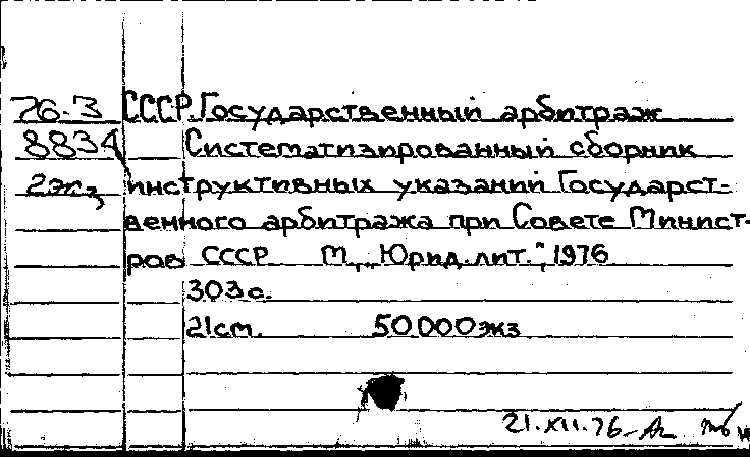 76-3 СССР. Государственный арбитраж
8834 Систематизированный сборник
2экз инструктивных указаний Государст-
венного арбитража при Совете Министр-
ров СССР М., „Юрид. лит.", 1976
303с.
21см. 50000экз
21.XII.76-